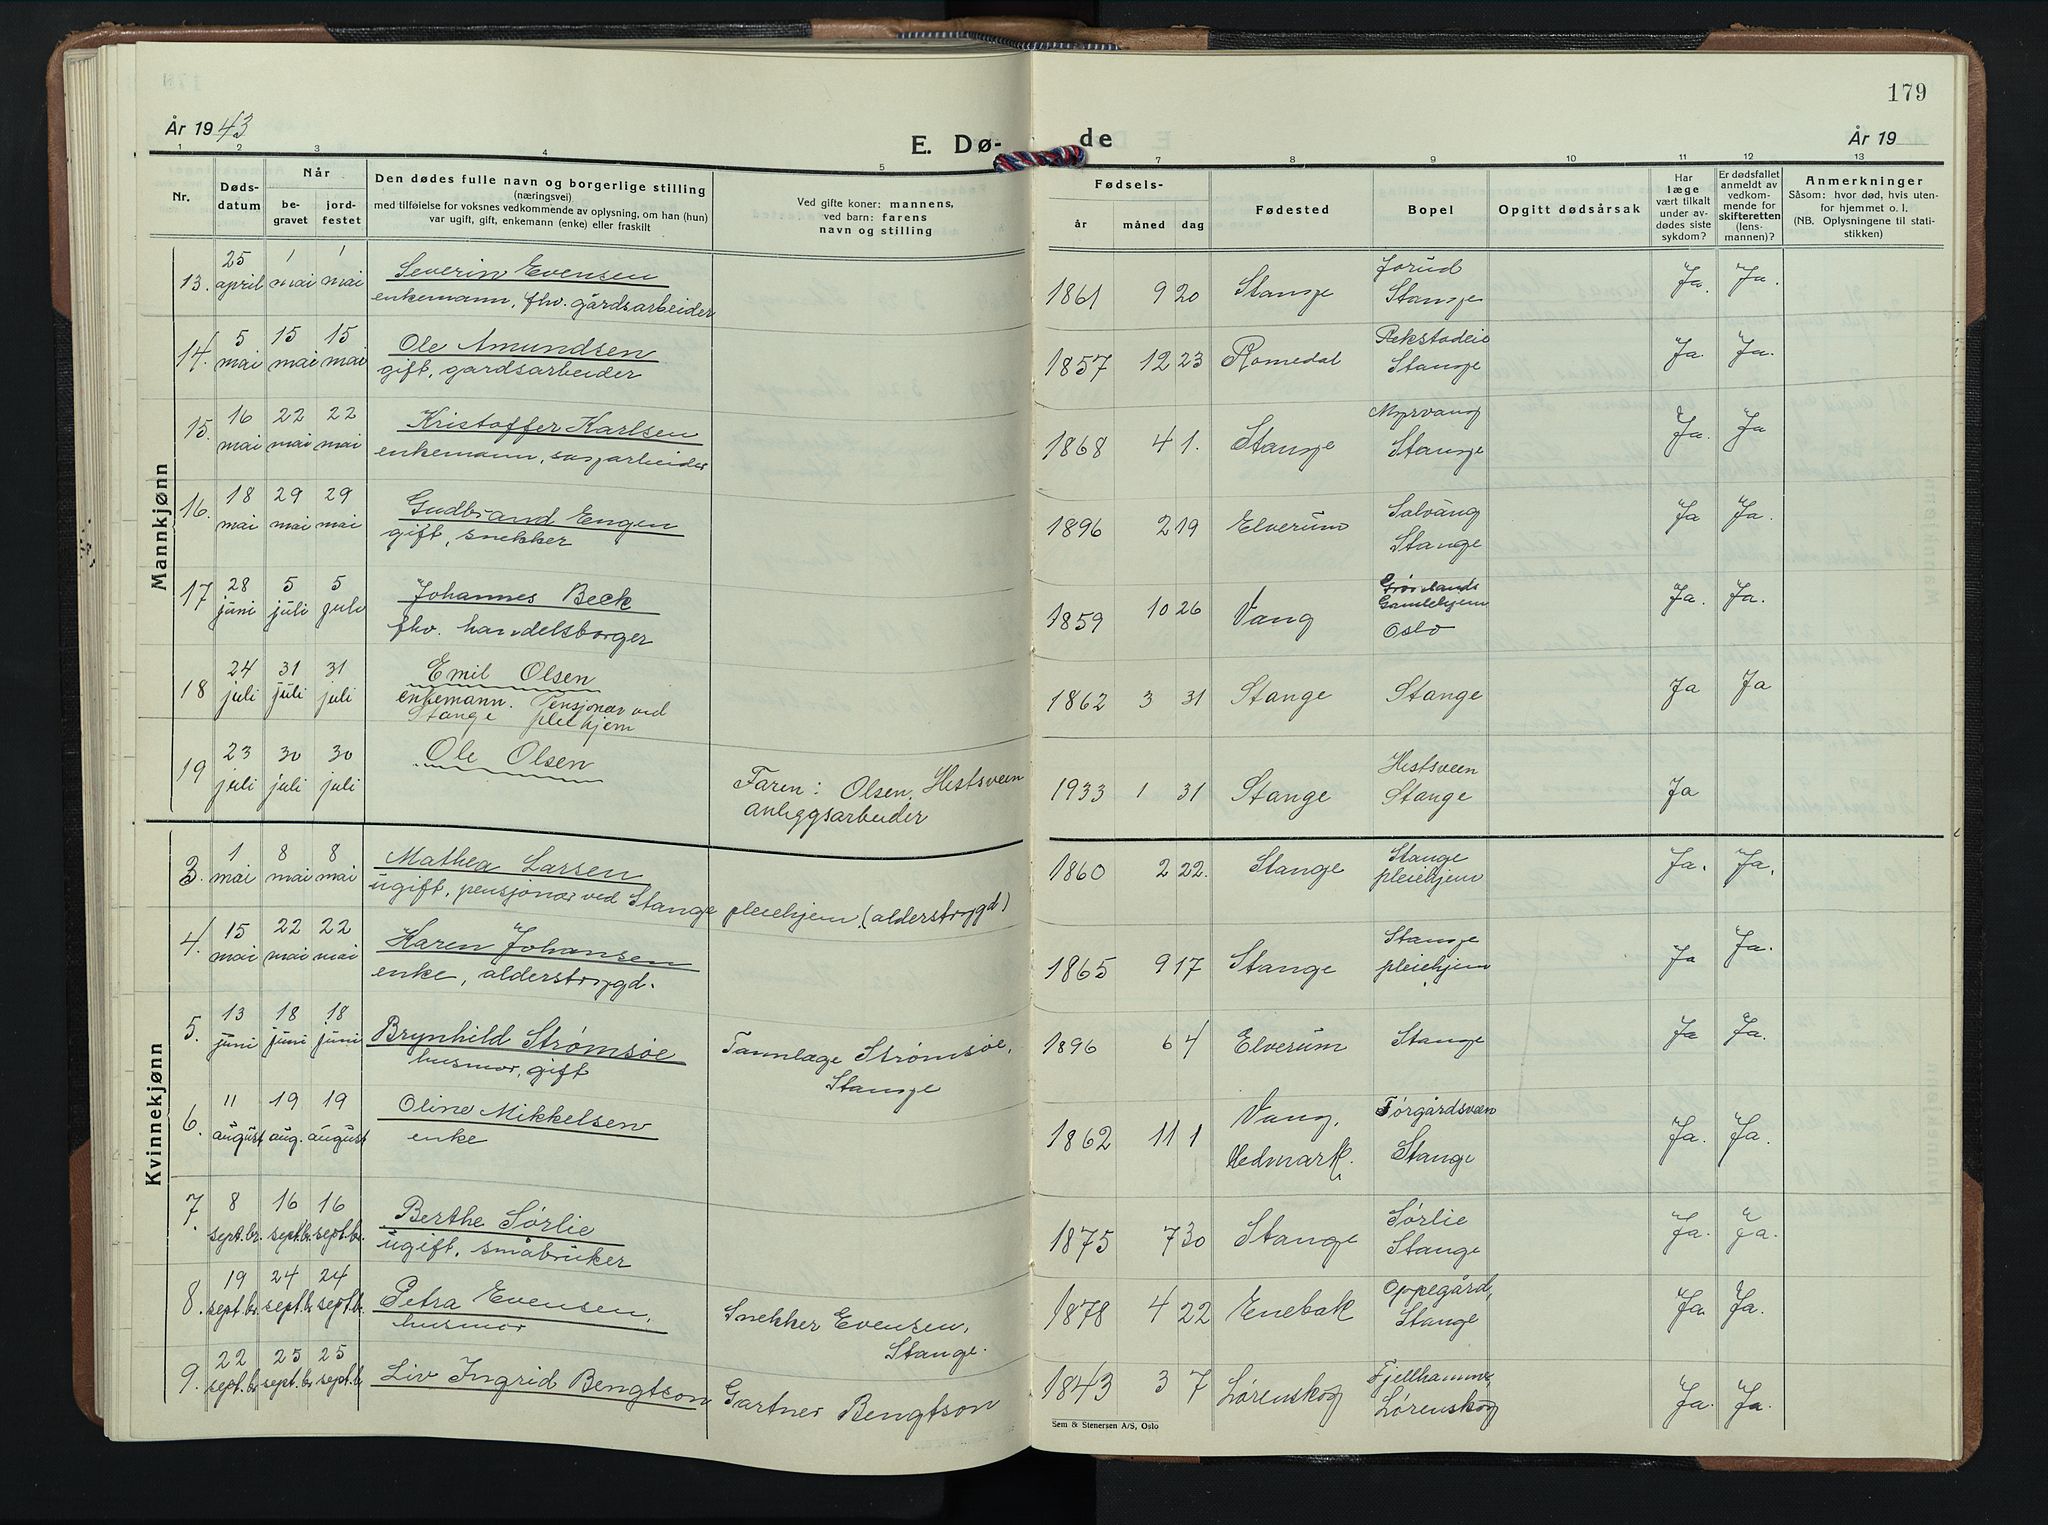 179
År 1943
E. Dø-de
År 19
1 2 3 4 5 7 8 9 10 11 12 13
Nr.
Døds-
datum
Når
be-
gravet
jord-
festet
Den dødes fulle navn og borgerlige stilling
(næringsvei)
med tilføielse for voksnes vedkommende av oplysning, om han (hun)
var ugift, gift, enkemann (enke) eller fraskilt
Ved gifte koner: mannens,
ved barn: farens
navn og stilling
Fødsels-
år måned dag
Fødested
Bopel
Opgitt dødsårsak
Har
læge
vært tilkalt
under av-
dødes siste
sykdom?
Er dødsfallet
anmeldt av
vedkom-
mende for
skifteretten
(lens-
mannen)?
Anmerkninger
Såsom: hvor død, hvis uten-
for hjemmet o. l.
(NB. Oplysningene til stati-
stikken)
Mannkjønn
13. 25 april 1 mai 1 mai Severin Evensen 1861 9 20 Stange Jorud Stange Ja. Ja.
enkemann, fhv. gårdsarbeider
14. 5 mai 15 mai 15 mai Ole Amundsen 1857 12 23 Romedal Rekstadeie Stange Ja. Ja.
gift, gardsarbeider
15. 16 mai 22 mai 22 mai Kristoffer Karlsen 1868 4 1. Stange Myrvang Stange Ja. Ja
enkemann, sagarbeider
16. 18 mai 29 mai 29 mai Gudbrand Engen 1896 2 19 Elverum Solvang Stange Ja Ja.
gift, snekker
17 28 juni 5 juli 5 juli Johannes Beck 1859 10 26 Vang Grønlands Gamlehjem Oslo Ja. Ja.
fhv. handelsborger
18 24 juli 31 juli 31 juli Emil Olsen 1862 3 31 Stange Stange Ja Ja
enkemann. Pensjonær ved
Stange pleiehjem
19 23 juli 30 juli 30 juli Ole Olsen Faren: Olsen, Hestsveen 1933 1 31 Stange Hestsveen Stange Ja
anleggsarbeider
Kvinnekjønn
3. 1 mai 8 mai 8 mai Mathea Larsen 1860 2 22. Stange Stange pleiehjem Ja. Ja.
ugift, pensjonær ved Stange pleiehjem (alderstrygd)
4. 15 mai 22 mai 22 mai Karen Johansen 1865 9 17 Stange Stange pleiehjem Ja Ja.
enke, alderstrygd.
5. 13 juni 18 juni 18 juni Brynhild Strømsøe Tannlæge Strømsøe, 1896 6 4 Elverum Stange Ja Ja.
husmor, gift Stange
6. 11 august 19 aug. 19 august Oline Mikkelsen 1862 11 1 Vang, Hedmark. Torgårdsveen Stange Ja. Ja.
enke
7. 8 sept.br. 16 sept.br. 16 sept.br. Berthe Sørlie 1875 7 30 Stange Sørlie Stange Ja. Ja.
ugift, småbruker
8. 19 sept.br 24 sept.br 24 sept.br Petra Evensen, Snekker Evensen, 1878 4 22 Enebak Oppegård, Stange Ja. Ja.
husmor Stange.
9. 22 sept.br 25 sept.br 25 sept.br Liv Ingrid Bengtson Gartner Bengtson 1843 3 7 Lørenskog Fjellhammer, Lørenskog Ja. Ja.
Sem & Stenersen A/S, Oslo